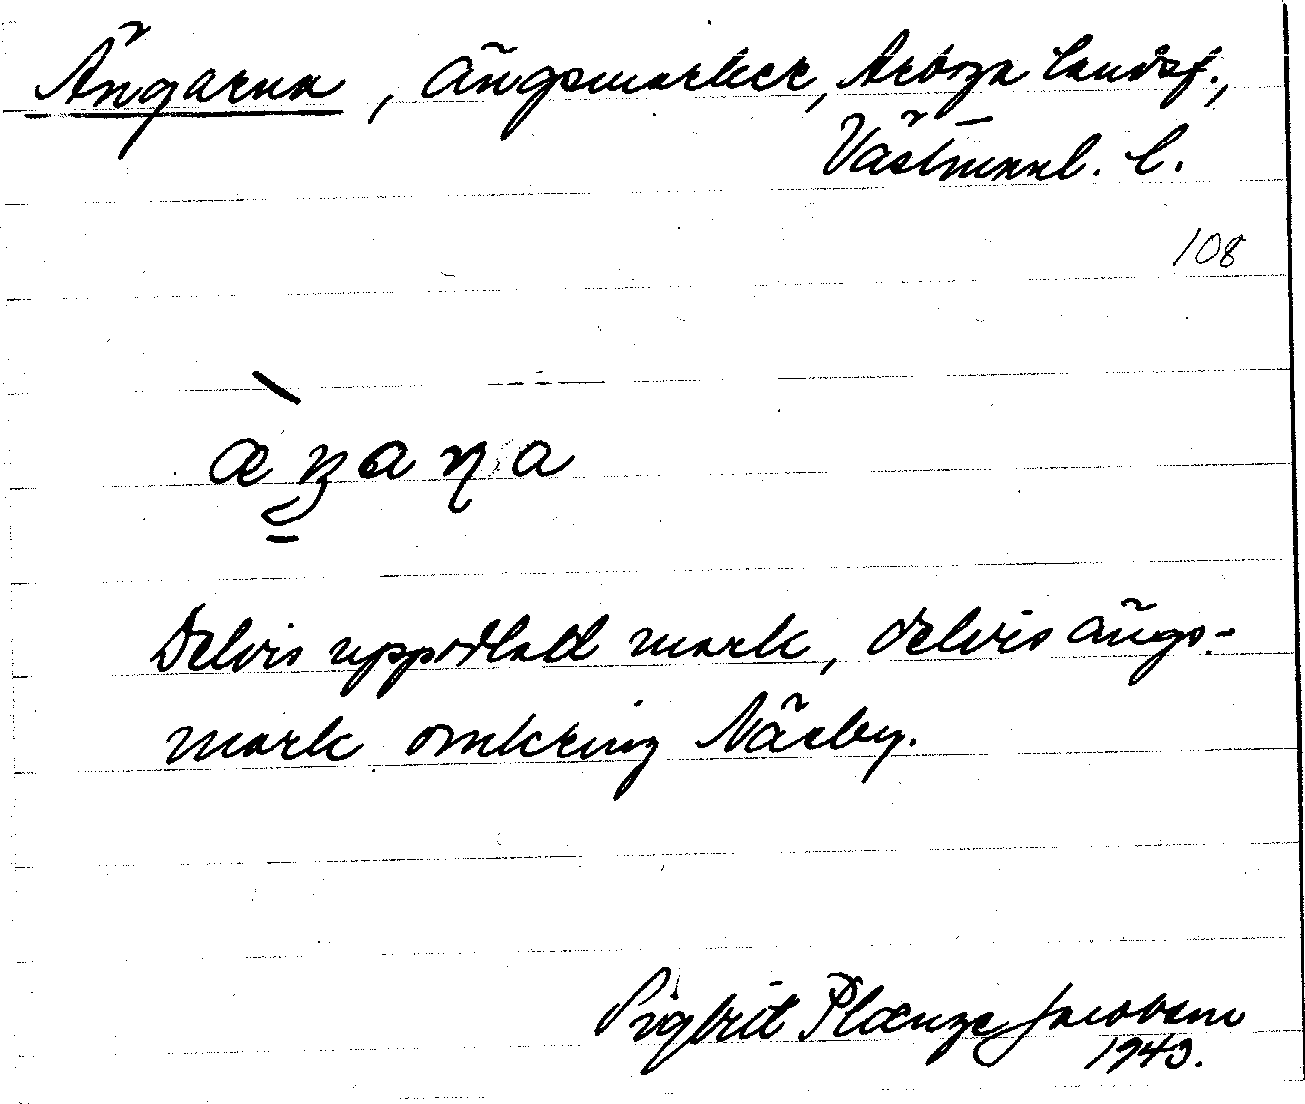 Ängarna, ängsmarker, Arboga landsf.,
Västmanl. l.
108
Delvis uppodlad mark, delvis ängs-
mark omkring Näsby.
Sigbrit Plænge Jacobson
1943.